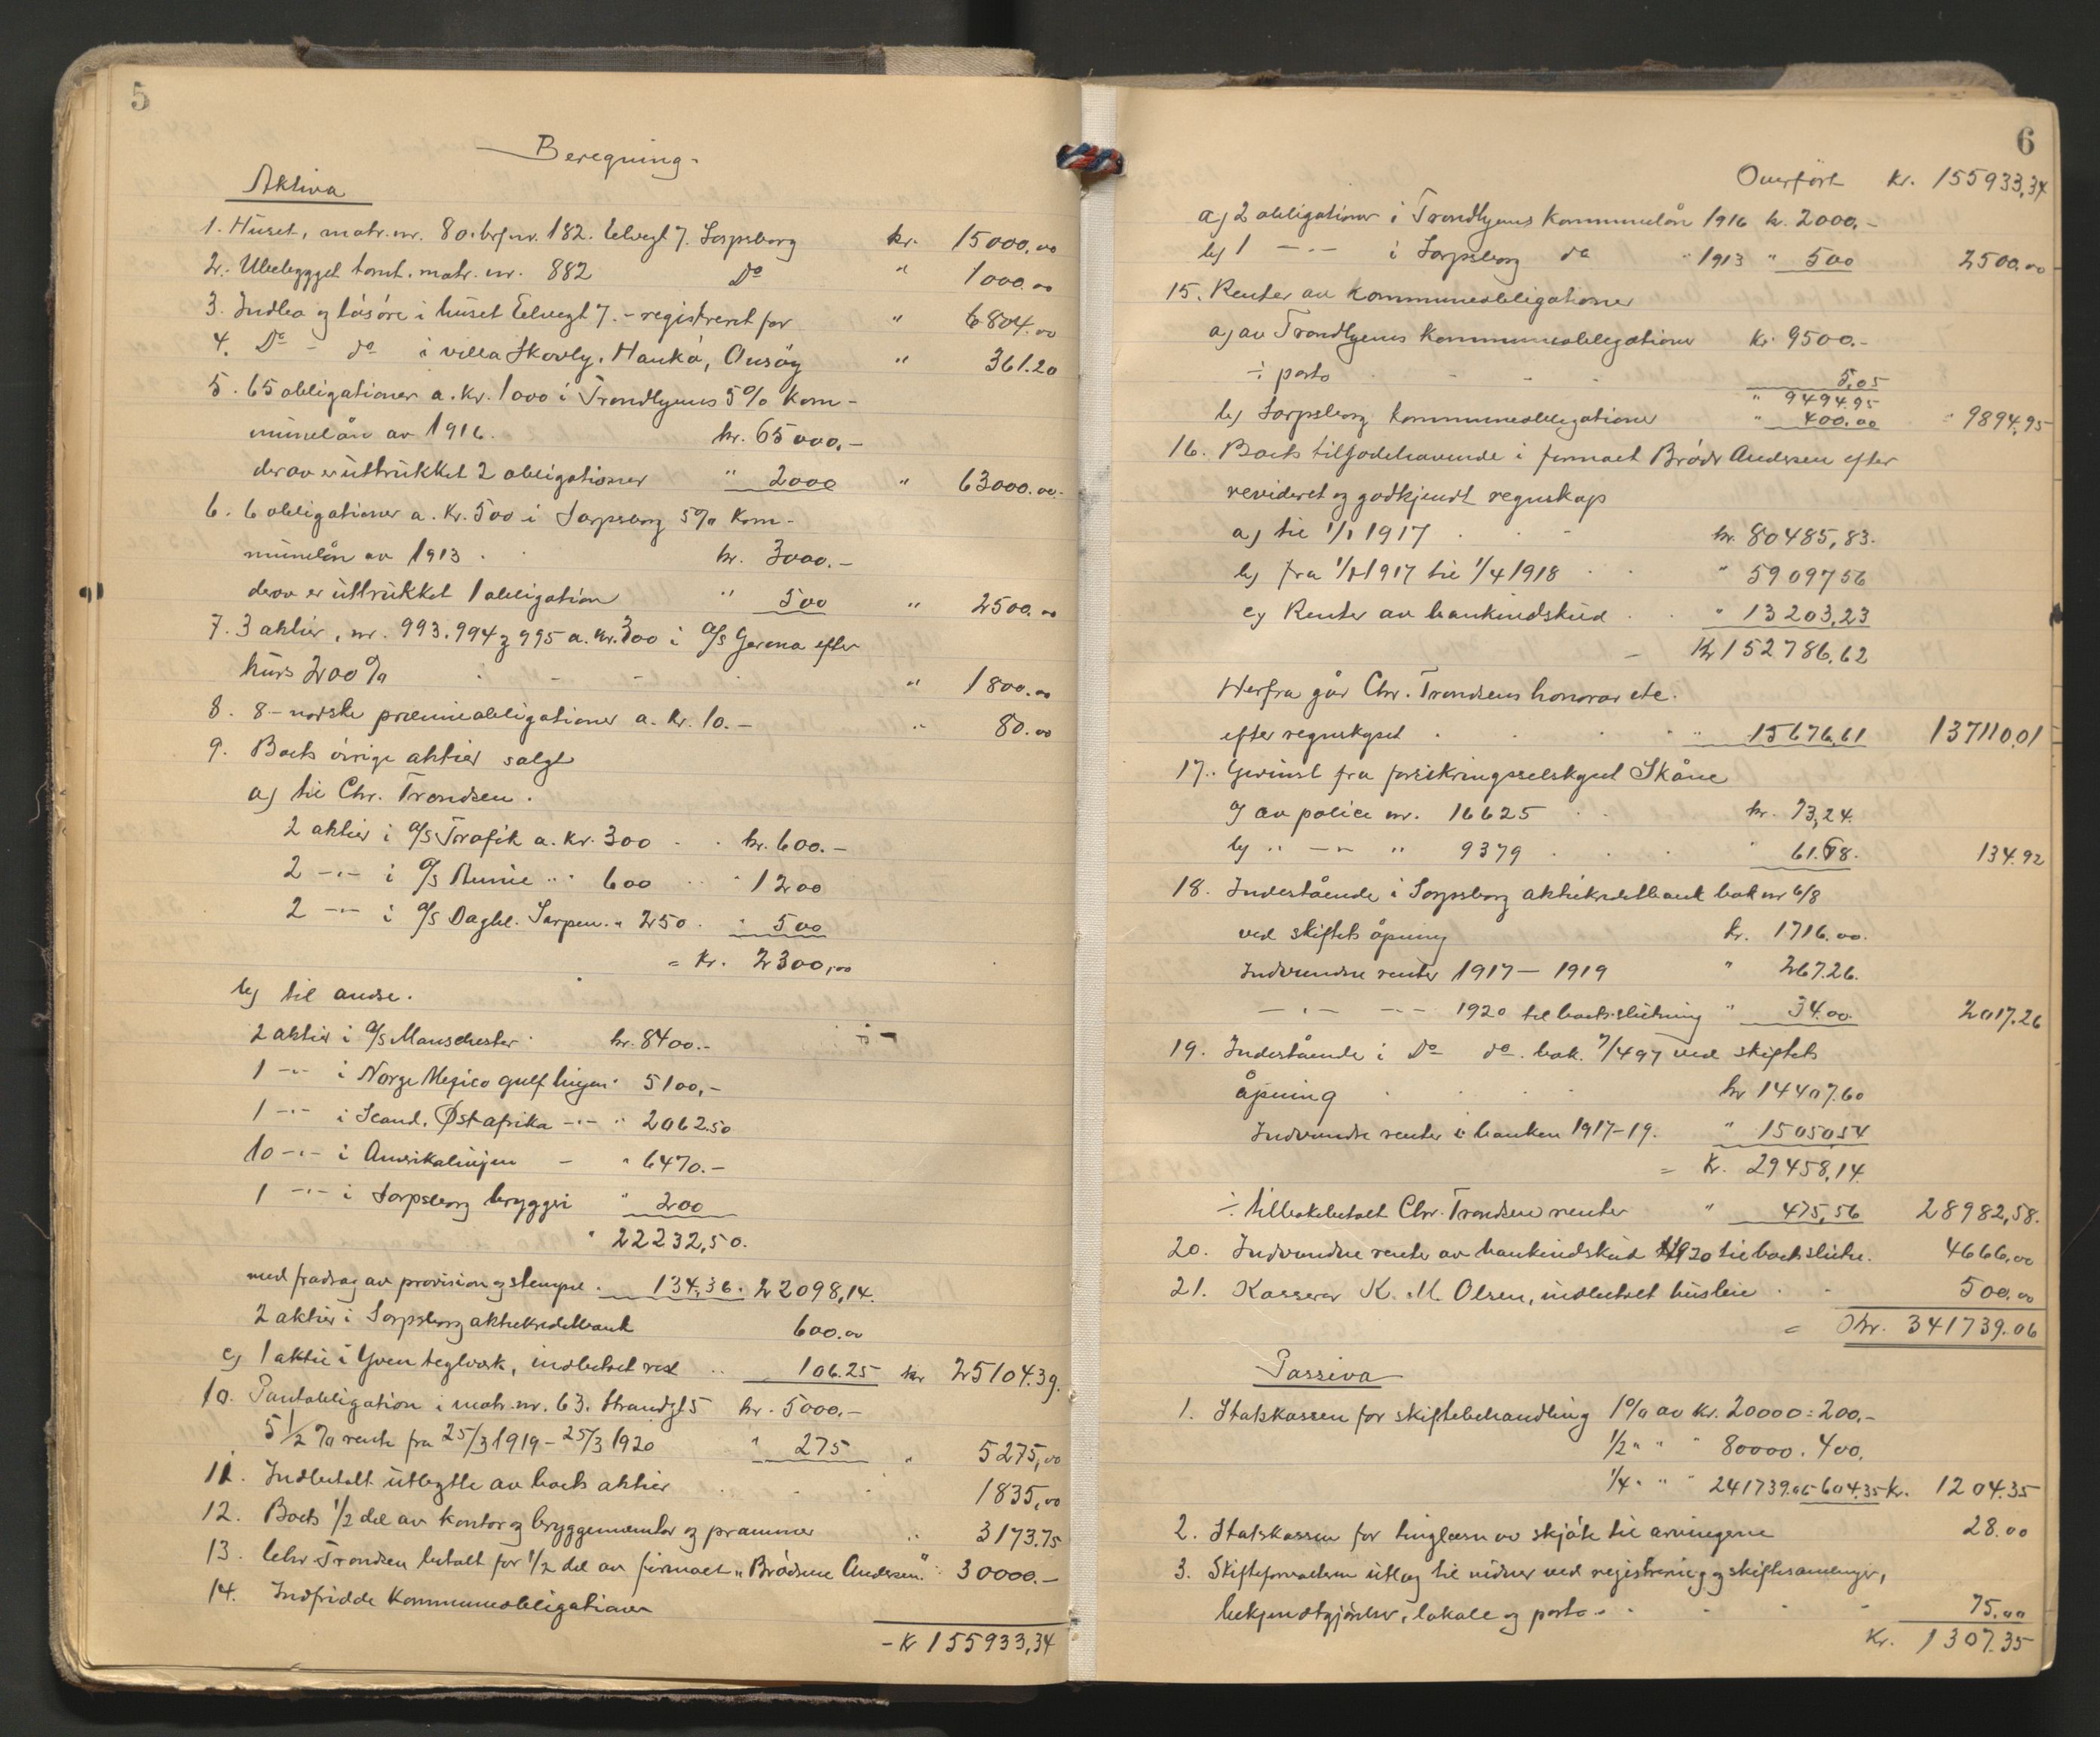 5
Beregning.
Aktiva
1. Huset, matr. nr. 80. brf. nr. 182. Elvegt 7. Sarpsborg kr. 15000,00
2. Ubebygget tomt. matr. nr. 882 Do " 1000.00
3. Indbo og løsøre i huset Elvegt 7. - registreret for " 6804.00
4. Do - do i villa Skovly, Hankø, Onsøy " 361.20
5. 65 obligationer a. kr. 1000 i Trondhjems 5% kom-
munelån av 1916. kr. 65000,-
derav er uttrukket 2 obligationer " 2000 " 63000.00.
6. 6 obligationer a. kr. 500 i Sarpsborg 5% kom-
munelån av 1913 . kr. 3000.-
derav er uttrukket 1 obligation " 500 " 2500.00
7. 3 aktier, nr. 993. 994 og 995 a. kr. 300 i A/S Gerona efter
kurs 200% " 1800.00
8. 8 - norske præmieobligationer a. kr. 10.- " 80.00
9. Boets øvrige aktier solgt
a) til Chr. Trondsen.
2 aktier i A/S Trafik a. kr. 300 . . kr. 600.-
2 -"- i A/S " 600 " 1200
2 -"- i A/S Dagbl. Sarpen. " 250 . " 500
= kr. 2300,00
b) til andre.
2 aktier i A/S Manschester kr. 8400.-
1 -"- i Norge Mexico gulf linjen " 5100,-
1 -"- i Scand. Østafrika -"- " 2062.50
10 -"- i Amerikalinjen - " 6470.-
1 -"- i Sarpsborg bryggeri " 200
" 22232,50.
med fradrag av provision og stempel . 134,36. 22098,14.
2 aktier i Sarpsborg aktiekreditbank 600.00
c) 1 aktie i Yven teglverk, indbetalt ved .. 106.25 kr 25104.39.
10. Pantobligation i matr. nr. 63. Strandgt 5 kr. 5000.-
5 1/2 % rente fra 25/3 1919 - 25/3 1920 " 275 " 5275,00
11. Indbetalt utbytte av boets aktier . . . 1835,00
12. Boets 1/2 del av kontor og bryggeinventar og prammer " 3173.75
13. Chr Trondsen betalt for 1/2 del av firmaet "Brødrene Andersen" " 30000.-
14. Indfridde kommuneobligationer
- Kr 155933,34
6
Overført kr. 155933,34
a) 2 obligationer i Trondhjems kommunelån 1916 kr. 2000,-
b) 1 -"- i Sarpsborg do " 1913 " 500 2500.00
15. Renter av kommuneobligationer
a) av Trondhjems kommuneobligationer kr. 9500.-
÷ porto 5,05
" 9494.95
b) Sarpsborg kommuneobligationer " 400.00 " 9894,95
16. Boets tilgodehavende i firmaet Brødr Andersen efter
revideret og godkjendt regnskap
a) til 1/1 1917 . kr. 80485,83.
b) fra 1/1 1917 til 1/4 1918 . . " 5909756
c) Renter av bankindskud . . " 13203,23
- Kr 152786,62
Herfra går Chr. Trondsens honorar etc.
efter regnskapet . . . " 15676,61 137110,01
17. Gevinst fra forsikringsselskapet Skåne
a) av police nr. 16625 . . kr. 73,24.
b) " -"- " 9379 . . . " 61.68. 134.92
18. Indestående i Sarpsborg aktiekreditbank bok nr 6/8
ved skiftets åpning kr. 1716.00.
Indvundne renter 1917 - 1919 " 267.26.
-"- -"- 1920 til boets slutning " 34.00. 2017.26
19. Indestående i Do do. bok. 7/497 ved skiftets
åpning kr 14407.60
Indvundne renter i banken 1917-19. " 1505054
= Kr. 29458,14.
÷ tilbakebetalt Chr. Trondsen renter " 475,56 28982,58.
20. Indvundne renter av bankindskud 1920 til boets slutn. 4666,00
21. Kasserer K. M. Olsen, indbetalt husleie . . 500.00
= Kr. 341739.06
Passiva
1. Statskassen for skiftebehandling 1% av kr. 20000 = 200,-
1/2 " " " 80000. 400.
1/4 " " " 241739.06 604.35 kr. 1204.35
2. Statskassen for tinglæsn av skjøte til arvingerne 28.00
3. Skifteforvalteren utlæg til vidner ved registrering og skiftesamlinger,
bekjendtgjørelser, lokale og porto . . 75.00
Kr. 1307.35